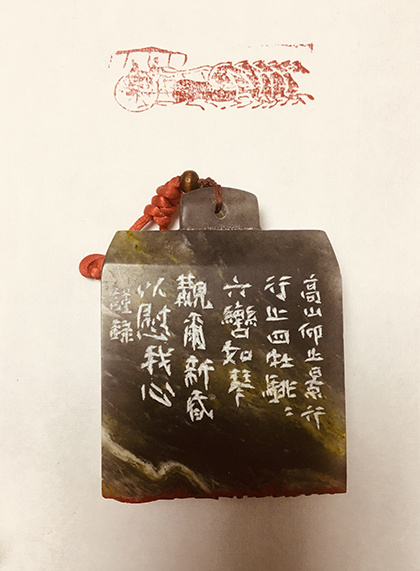 高山仰止景行
行止四牡騑〻
六轡如琴
覯爾新昏
以慰我心